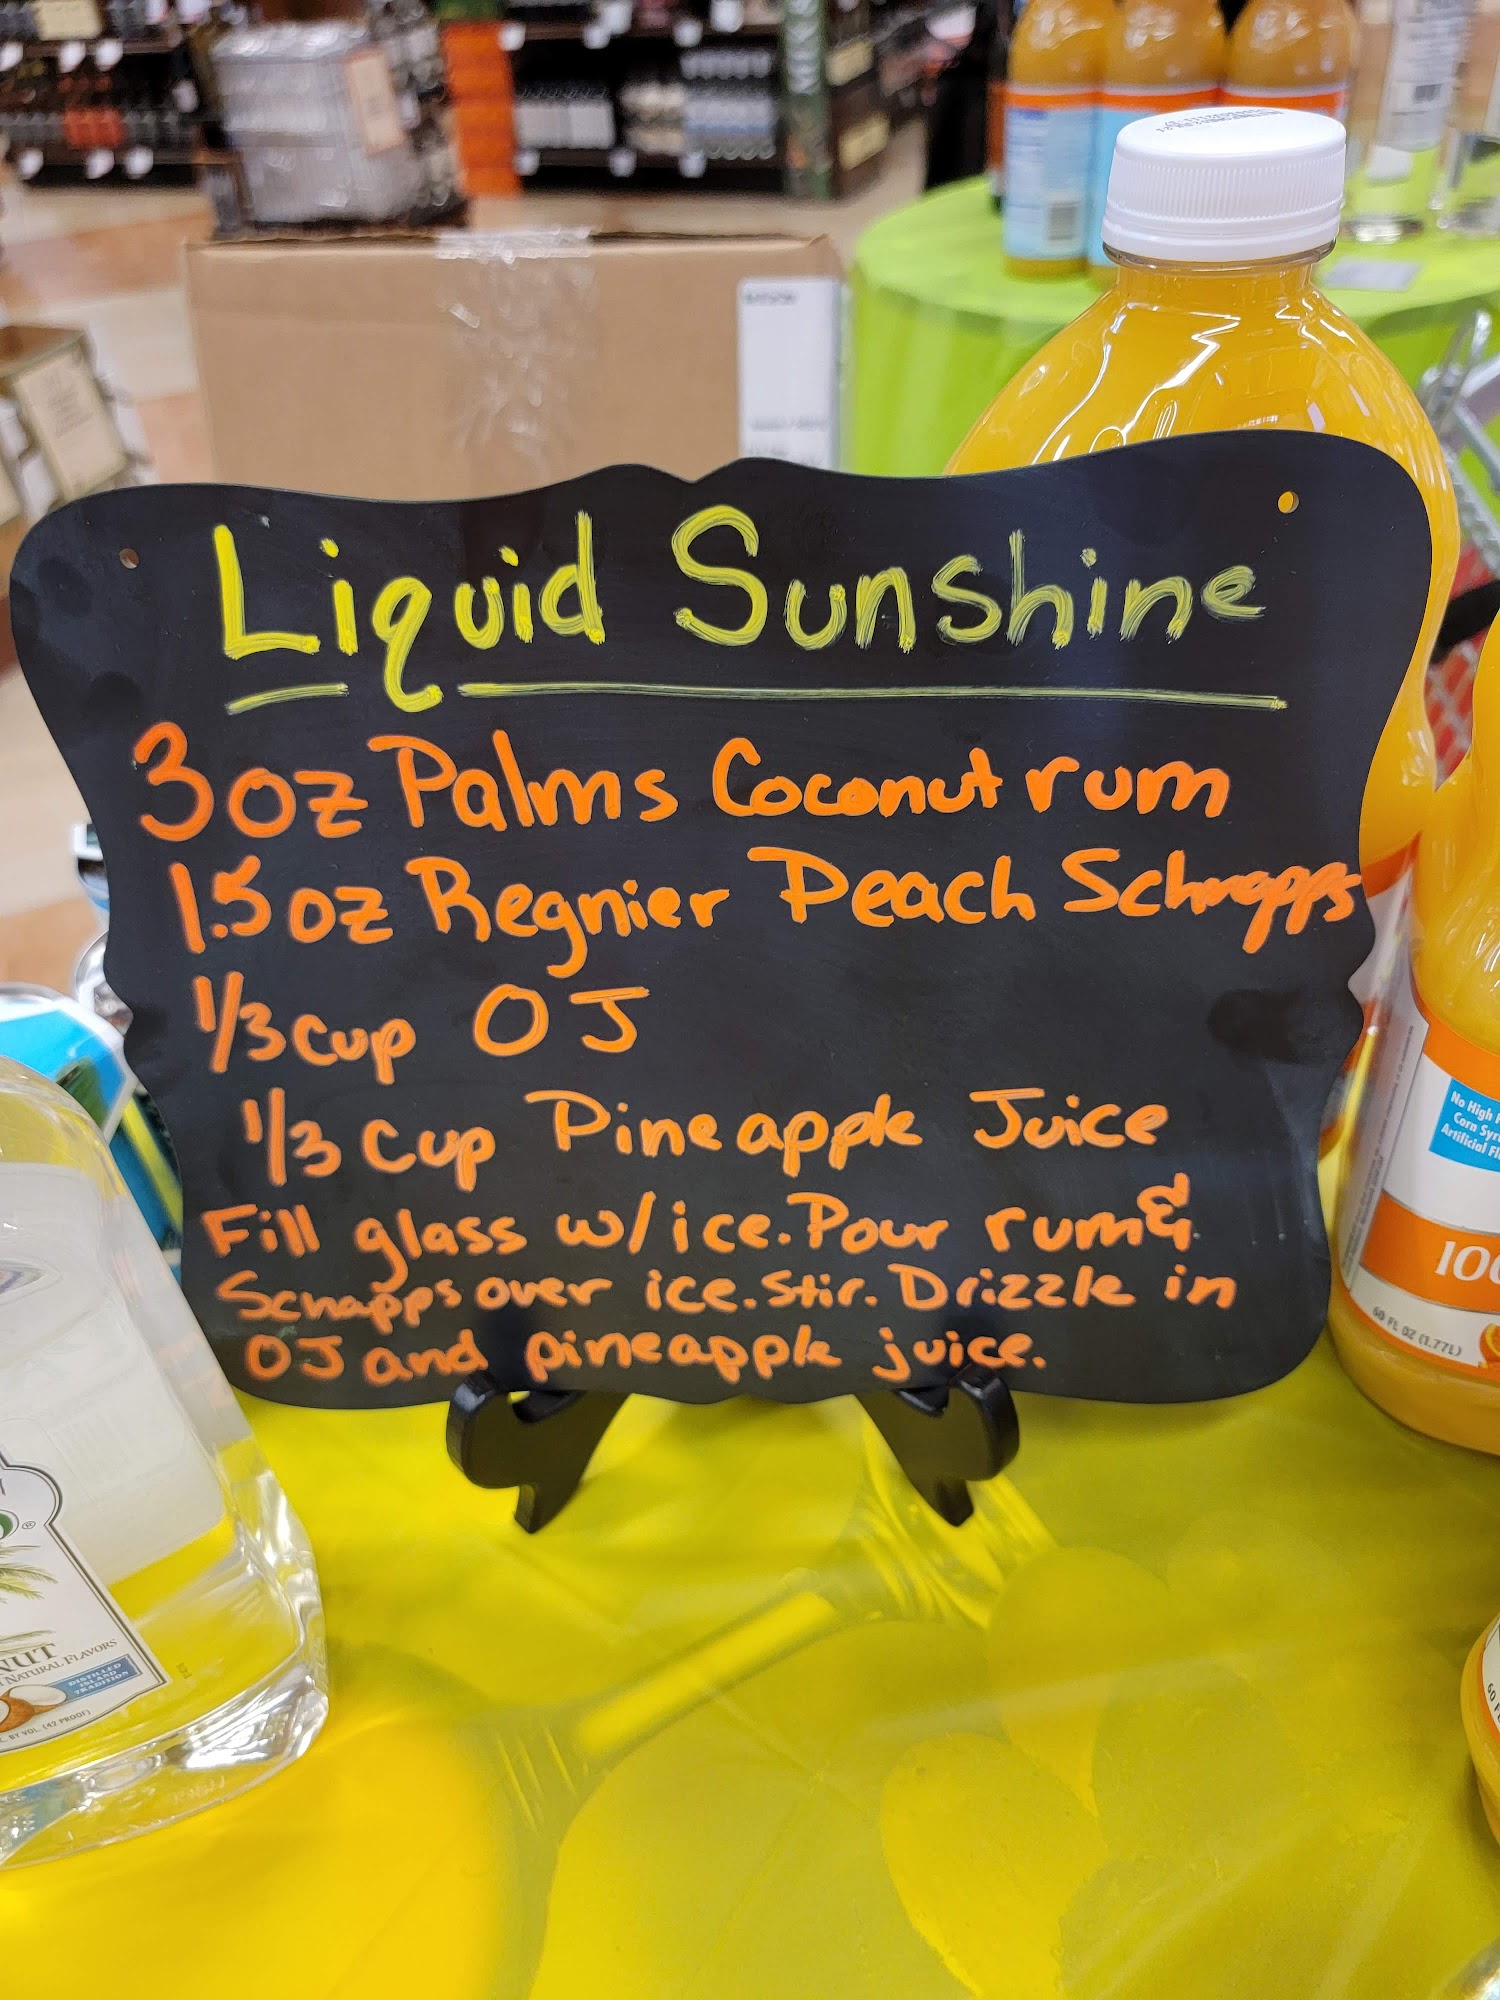 Liquid Sunshine
3 oz Palms Coconut rum
1.5 oz Regnier Peach Schnapps
1/3 cup OJ
1/3 cup Pineapple Juice
Fill glass w/ ice. Pour rum &
Schnapps over ice. Stir. Drizzle in
OJ and pineapple juice.
No High
Corn Syr
Artificial Fl
100
60 FL OZ (1.77L)
NUT
NATURAL FLAVORS
DISTILLED
ISLAND
TRADITION
BY VOL. (42 PROOF)